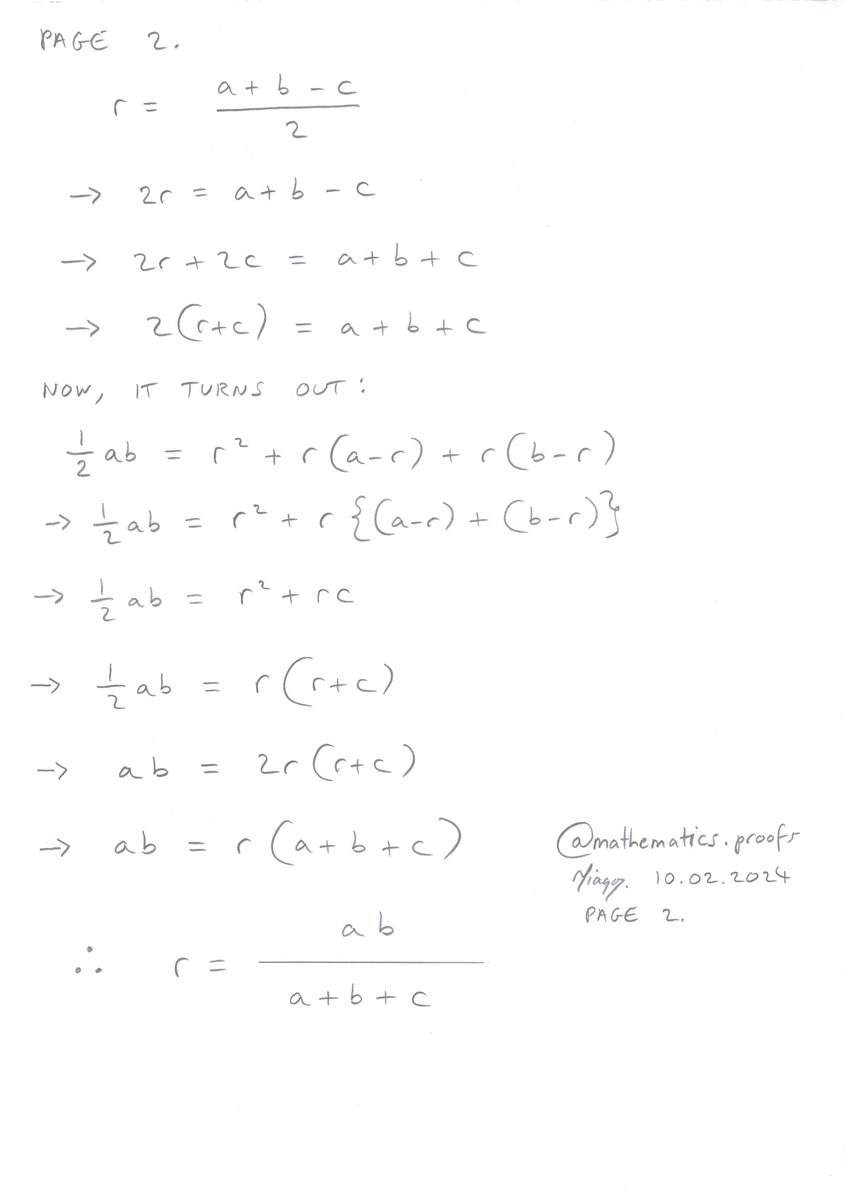 PAGE 2.
r = (a + b - c)/2
→ 2r = a + b - c
→ 2r + 2c = a + b + c
→ 2(r+c) = a + b + c
NOW, IT TURNS OUT:
1/2 ab = r² + r(a-r) + r(b-r)
→ 1/2 ab = r² + r{(a-r) + (b-r)}
→ 1/2 ab = r² + rc
→ 1/2 ab = r(r+c)
→ ab = 2r(r+c)
→ ab = r(a + b + c)
∴ r = ab/(a + b + c)
@mathematics.proofs
10.02.2024
PAGE 2.